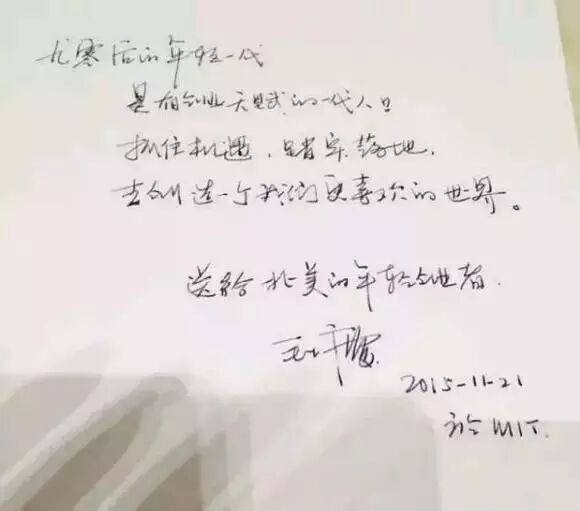 九零后的年轻一代
是有创业天赋的一代人。
抓住机遇，踏实落地，
去创造一个我们更喜欢的世界。
送给北美的年轻创业者。
2015-11-21
于 MIT.